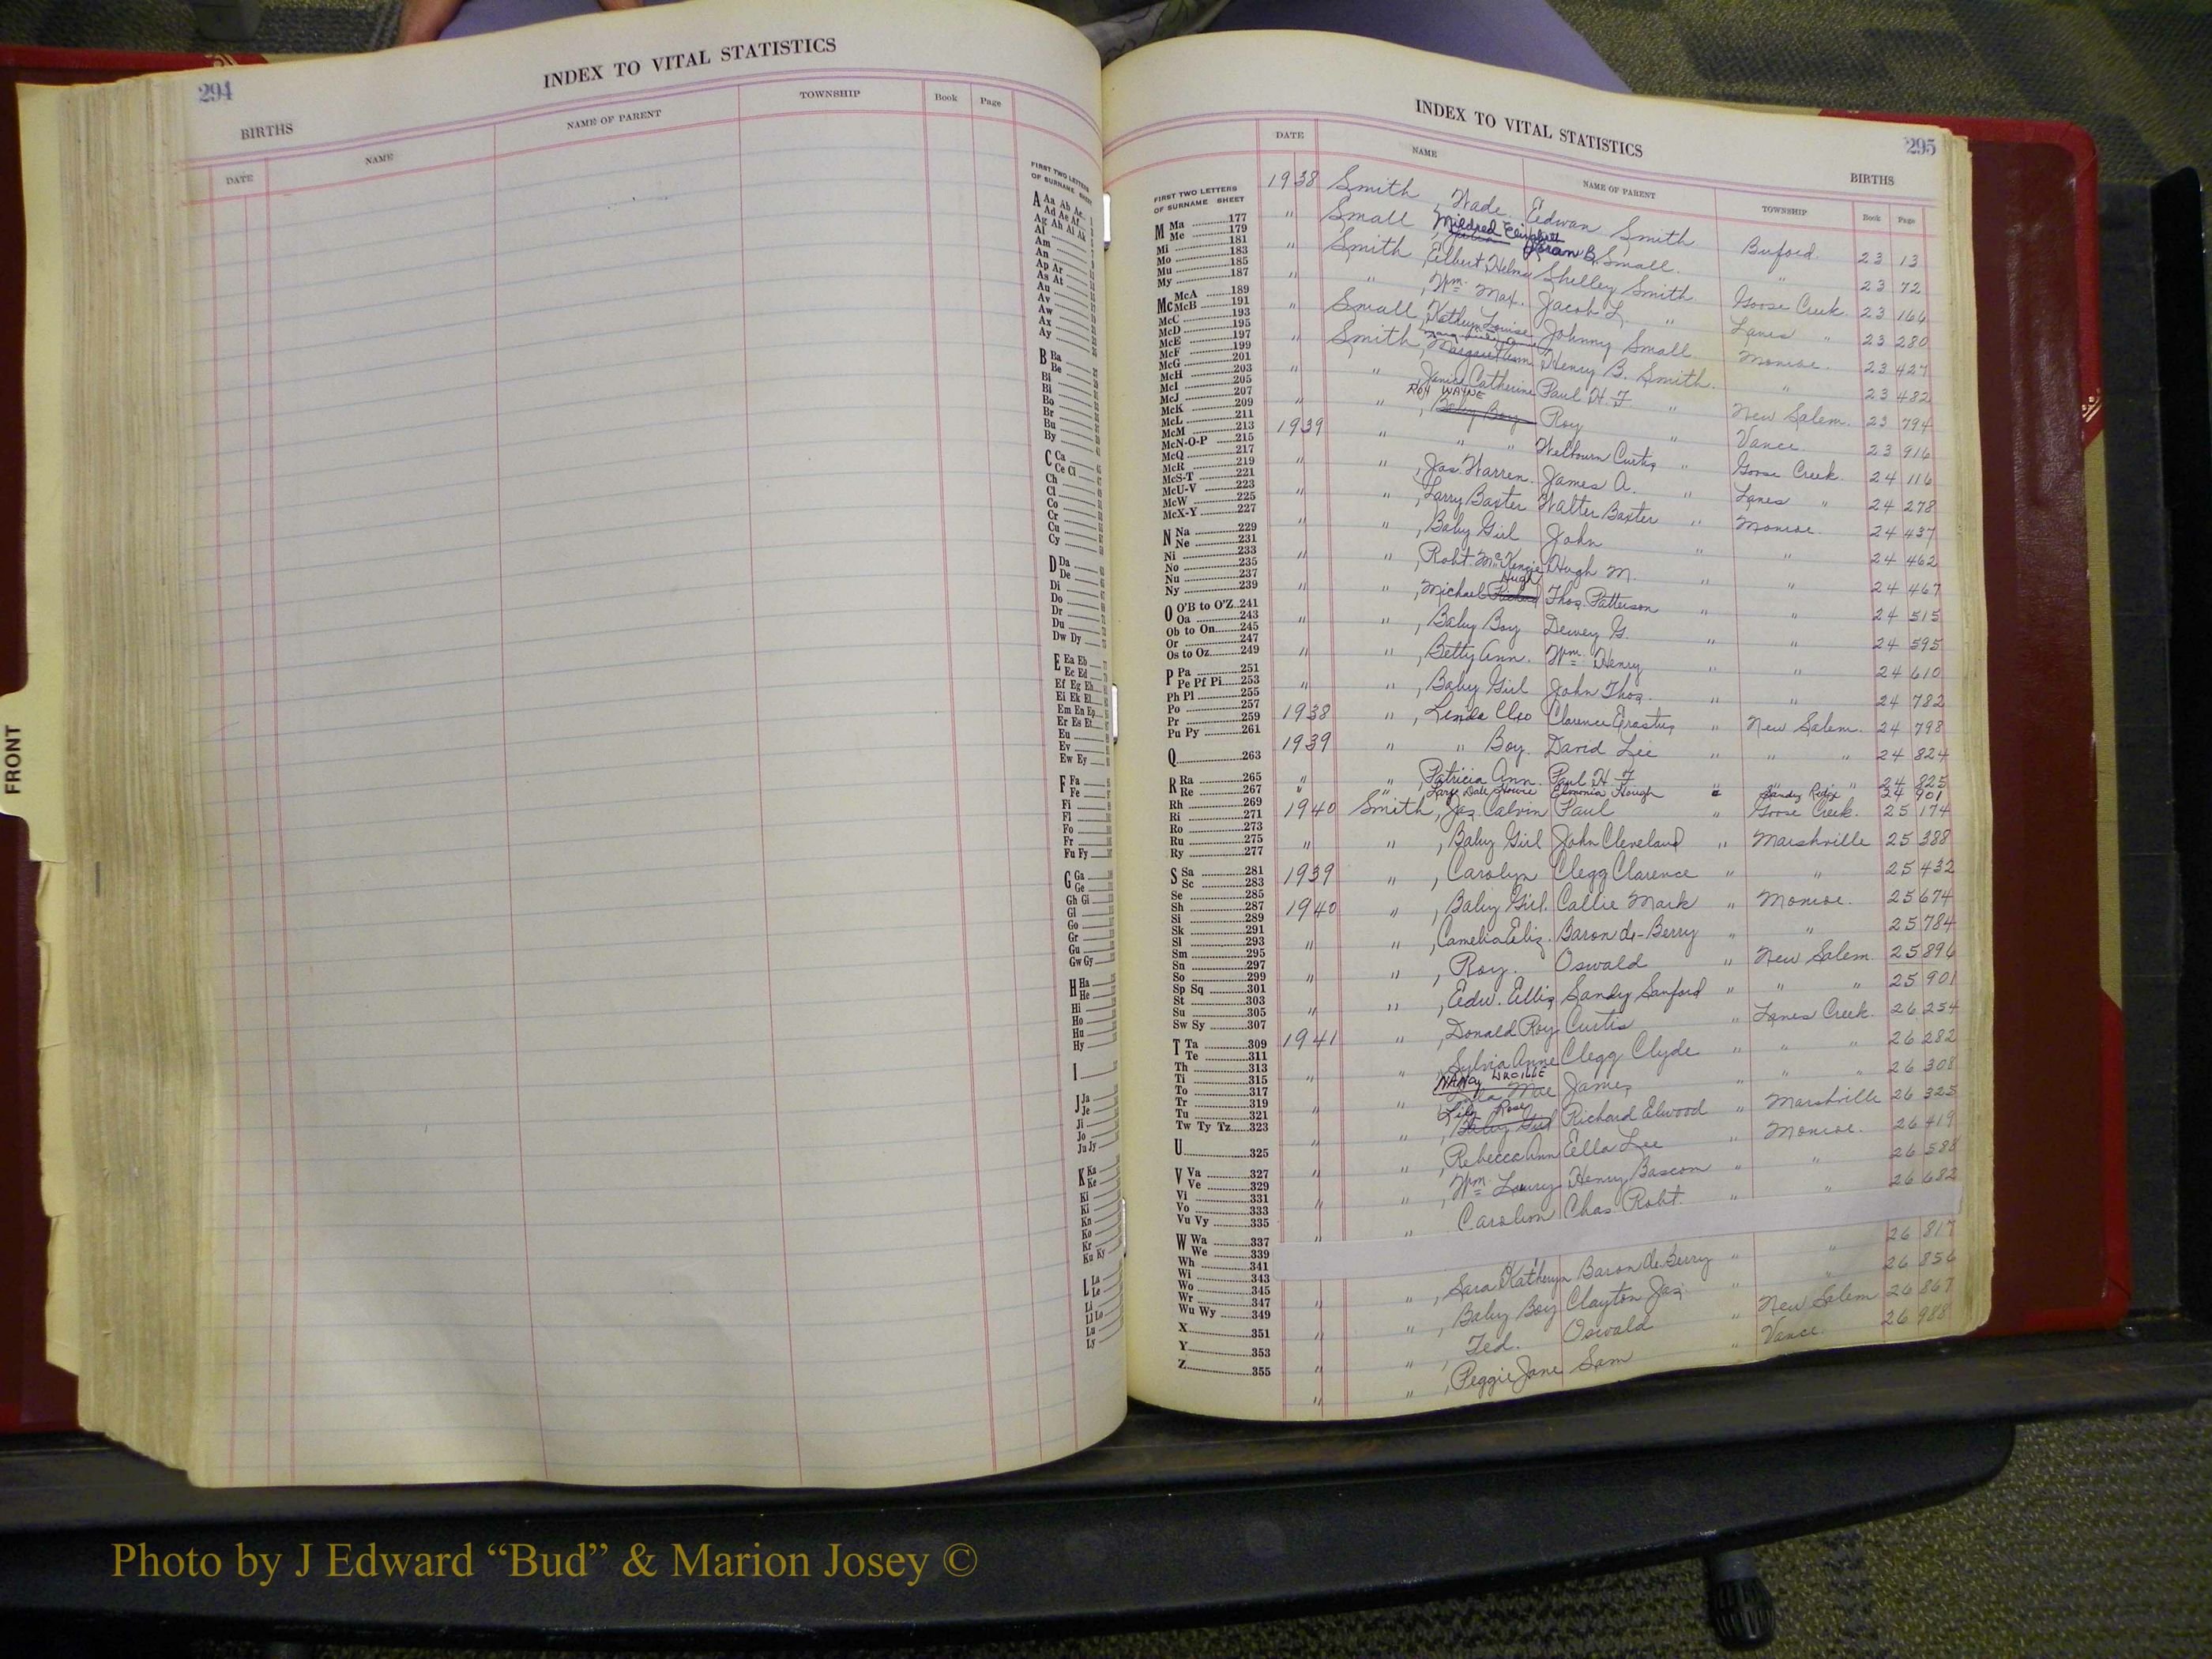 294
INDEX TO VITAL STATISTICS
BIRTHS
DATE
NAME
NAME OF PARENT
TOWNSHIP
Book
Page
FRONT
FIRST TWO LETTERS
OF SURNAME SHEET
A Aa Ab Ac
Ad Ae Af
Ag Ah Ai Ak
Al
Am
An
Ap Ar
As At
Au
Av
Aw
Ax
Ay
B Ba
Be
Bi
Bl
Bo
Br
Bu
By
C Ca
Ce Ci
Ch
Cl
Co
Cr
Cu
Cy
D Da
De
Di
Do
Dr
Du
Dw Dy
E Ea Eb
Ec Ed
Ef Eg Eh
Ei Ek El
Em En Ep
Er Es Et
Eu
Ev
Ew Ey
F Fa
Fe
Fi
Fl
Fo
Fr
Fu Fy
G Ga
Ge
Gh Gi
Gl
Go
Gr
Gu
Gw Gy
H Ha
He
Hi
Ho
Hu
Hy
I
J Ja
Je
Ji
Jo
Ju Jy
K Ka
Ke
Ki
Kl
Kn
Ko
Kr
Ku Ky
L La
Le
Li
Ll Lo
Lu
Ly
INDEX TO VITAL STATISTICS
295
BIRTHS
DATE
NAME
NAME OF PARENT
TOWNSHIP
Book
Page
FIRST TWO LETTERS
OF SURNAME SHEET
M Ma 177
Me 179
Mi 181
Mo 183
Mu 185
My 187
Mc McA 189
McB 191
McC 193
McD 195
McE 197
McF 199
McG 201
McH 203
McI 205
McJ 207
McK 209
McL 211
McM 213
McN-O-P 215
McQ 217
McR 219
McS-T 221
McU-V 223
McW 225
McX-Y 227
N Na 229
Ne 231
Ni 233
No 235
Nu 237
Ny 239
O O'B to O'Z 241
Oa 243
Ob to On 245
Or 247
Os to Oz 249
P Pa 251
Pe Pf Pi 253
Ph Pl 255
Po 257
Pr 259
Pu Py 261
Q 263
R Ra 265
Re 267
Rh 269
Ri 271
Ro 273
Ru 275
Ry 277
S Sa 281
Sc 283
Se 285
Sh 287
Si 289
Sk 291
Sl 293
Sm 295
Sn 297
So 299
Sp Sq 301
St 303
Su 305
Sw Sy 307
T Ta 309
Te 311
Th 313
Ti 315
To 317
Tr 319
Tu 321
Tw Ty Tz 323
U 325
V Va 327
Ve 329
Vi 331
Vo 333
Vu Vy 335
W Wa 337
We 339
Wh 341
Wi 343
Wo 345
Wr 347
Wu Wy 349
X 351
Y 353
Z 355
1938 Smith, Wade Edwan Smith Buford 23 13
" Small, Mildred Elizabeth B. Small " 23 72
" Smith, Elbert Helms Shelley Smith Goose Creek 23 166
" " , Wm. Max Jacob L. " Lanes " 23 280
" Small, Kathryn Louise Johnny Small Monroe 23 427
" Smith, Margaret Ann Henry B. Smith " 23 482
" " , Janice Catherine Paul H. F. " New Salem 23 794
" " , ROY WAYNE Baby Boy Roy " Vance 23 916
1939 " " " Welbourn Curtis " Goose Creek 24 116
" " , Jas. Warren James A. " Lanes " 24 278
" " , Larry Baxter Walter Baxter " Monroe 24 437
" " , Baby Girl John " " 24 462
" " , Robt. McKenzie Hugh M. " " 24 467
" " , Michael Hugh Thos. Patterson " " 24 515
" " , Baby Boy Dewey G. " " 24 595
" " , Betty Ann Wm. Henry " " 24 610
" " , Baby Girl John Thos. " " 24 782
1938 " , Linda Cleo Clarence Erastus " New Salem 24 798
1939 " " Boy David Lee " " " 24 824
" " , Patricia Ann Paul H. F. " " 24 825
" " , Dale Hough " Sandy Ridge 24 901
1940 Smith, Jas. Calvin Paul " Goose Creek 25 174
" " , Baby Girl John Cleveland " Marshville 25 388
1939 " , Carolyn Clegg Clarence " " 25 432
1940 " , Baby Girl Callie Mark " Monroe 25 674
" " , Camelia Eliz. Baron de-Berry " " 25 784
" " , Roy Oswald " New Salem 25 896
" " , Edw. Ellis Sandy Sanford " " " 25 901
1941 " , Donald Roy Curtis " Lanes Creek 26 254
" " , Sylvia Anne Clegg Clyde " " " 26 282
" " , NANCY Mae James " " " 26 308
" " , Lily Rose Baby Girl Richard Elwood " Marshville 26 325
" " , Rebecca Ann Ella Lee " Monroe 26 419
" " , Wm. Lowry Henry Bascon " " 26 588
" " Carolyn Chas. Robt. " " 26 682
" " , Sara Katheryn Baron de Berry " " 26 817
" " , Baby Boy Clayton Jas. " " 26 856
" " , Ted Oswald New Salem 26 867
" " , Peggie Jane Sam " Vance 26 988
Photo by J Edward “Bud” & Marion Josey ©